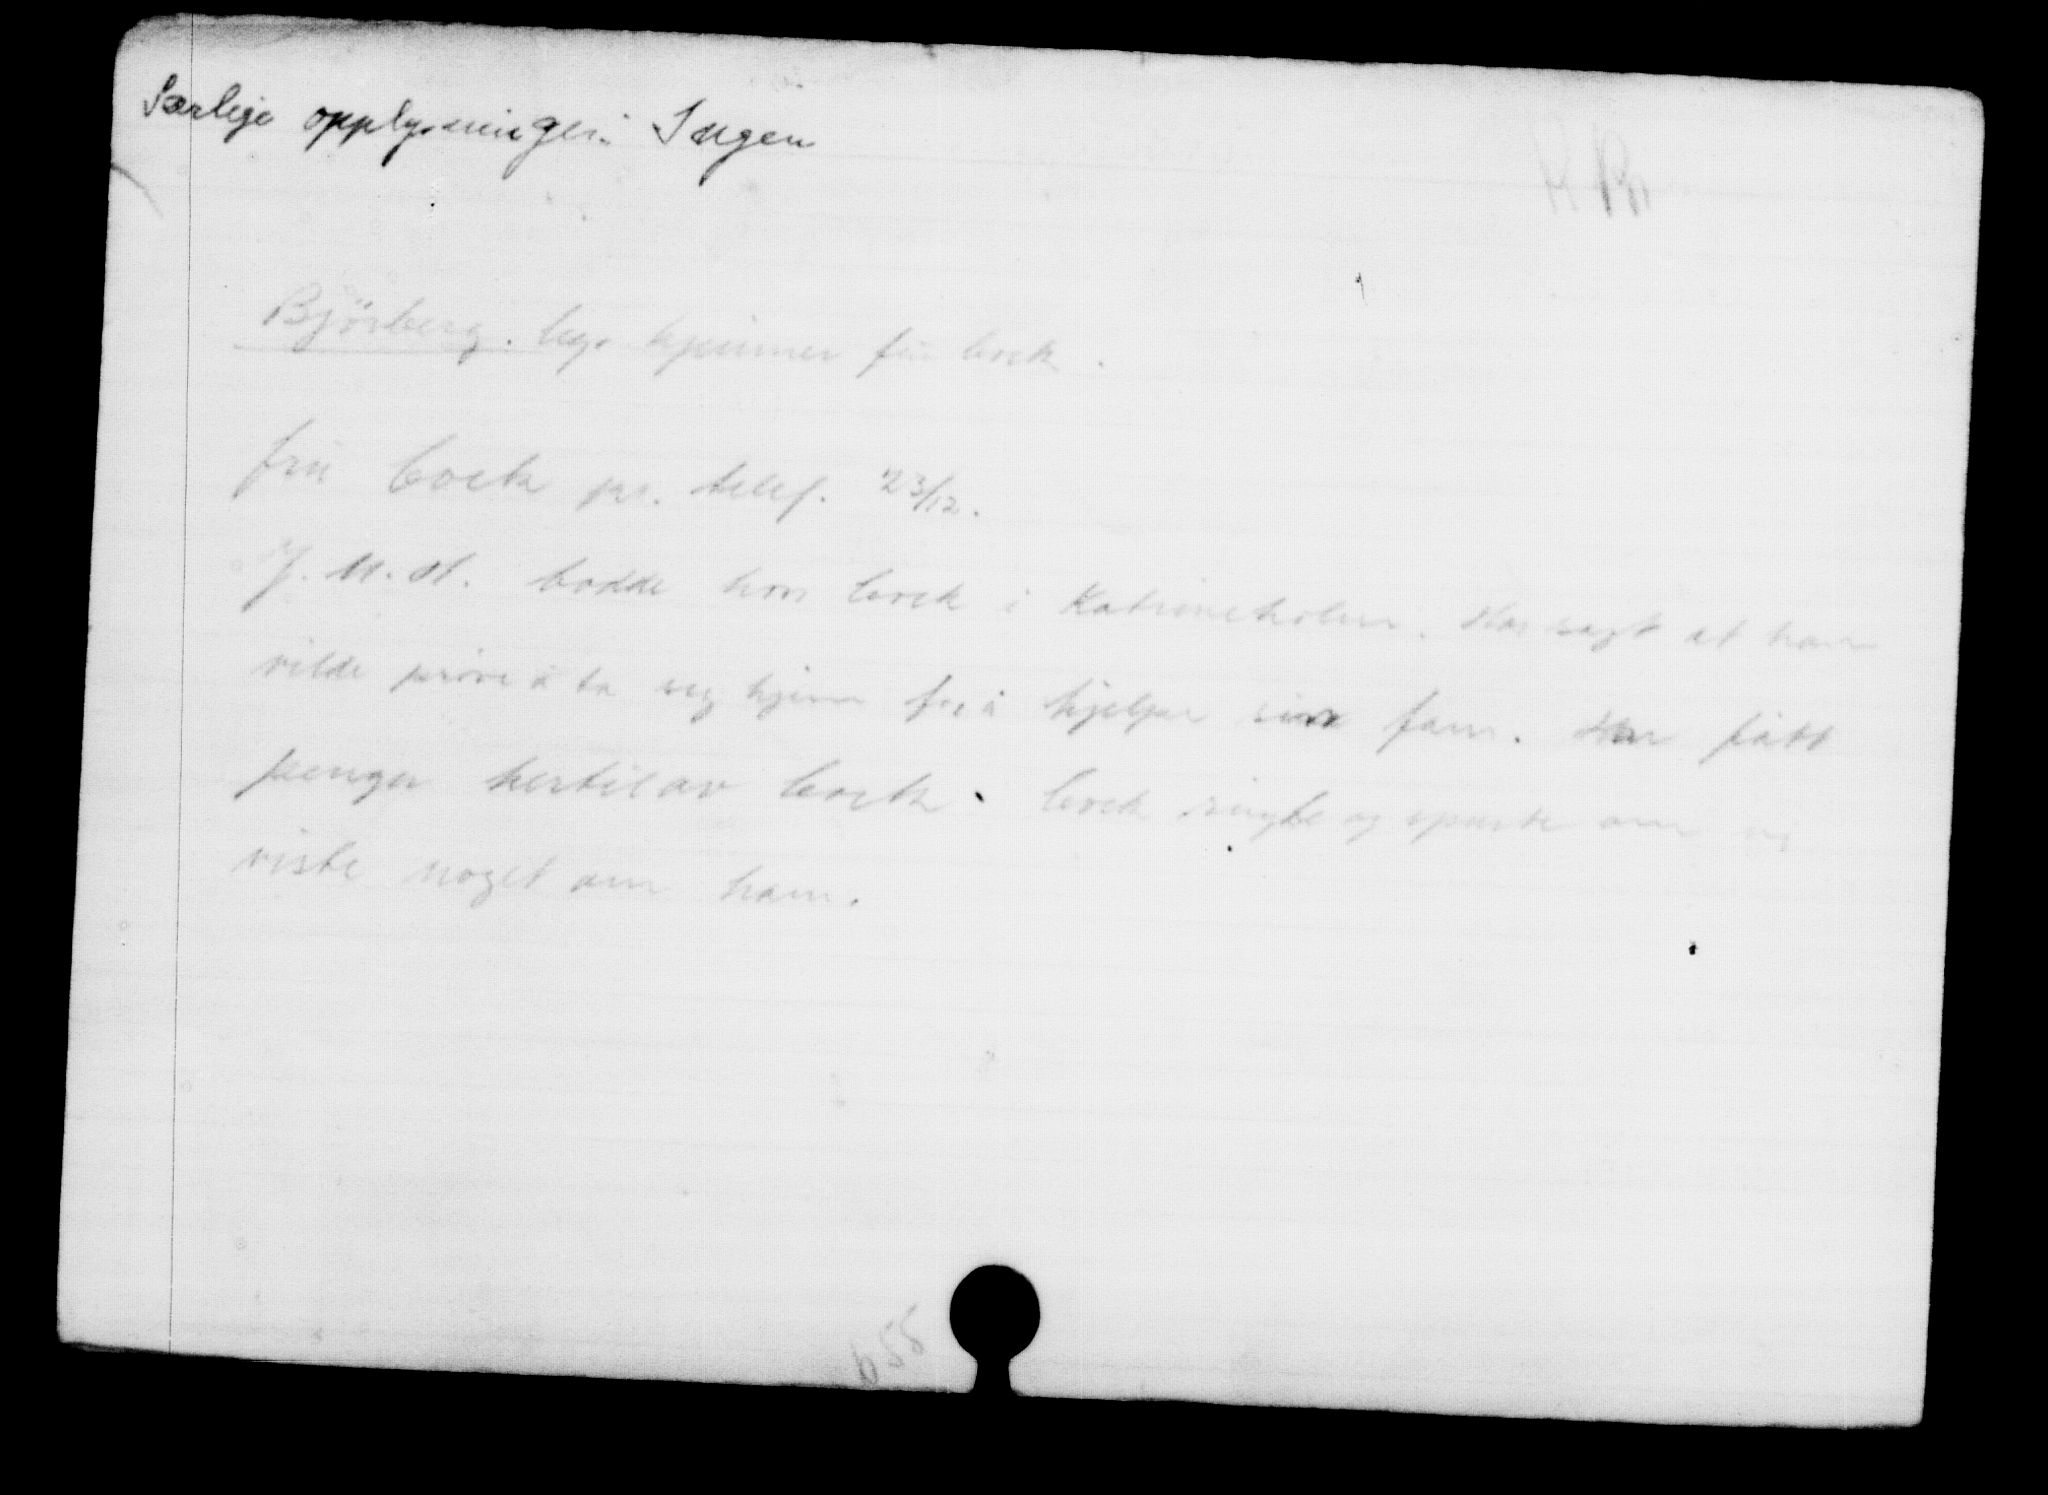 Særlige opplysninger: Ingen
Björberg. leg. kjenner fru Cock.
fru Cock pr. telef. 23/12.
J. M. A. bodde hos Cock i Katrineholm. Har sagt at han
vilde pröve å ta seg hjem for å hjelpe sin fam. Har fått
penger hertil av Cock. Cock ringte og spurte om vi
viste noget om ham.